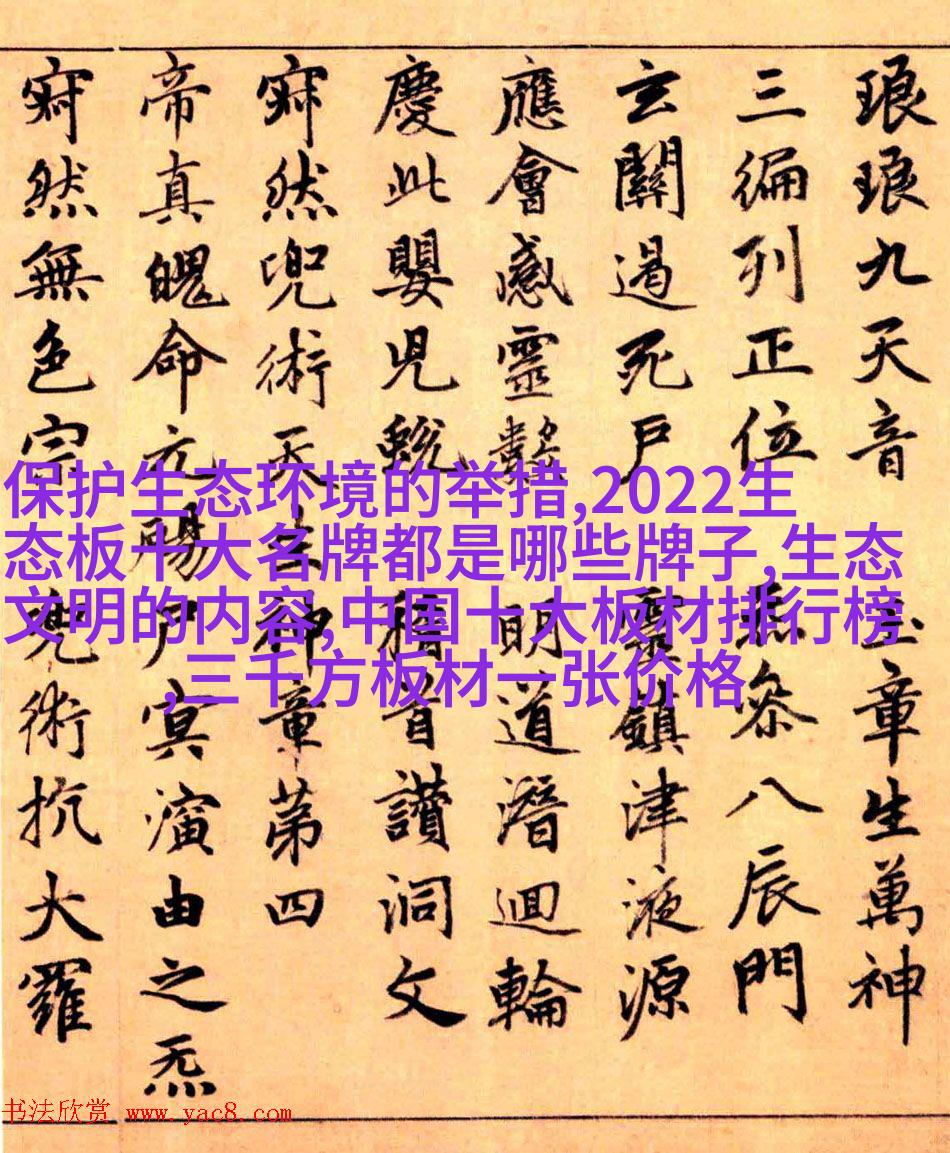 琅琅九天音 玉章生萬神
三編列正位 叅八辰門
玄關過死戶 靈鎮津液源
應會感靈 明道潛迴輪
慶此嬰兒蛻 稽首讚洞文
寂然兜術天 章第四
帝真魄命元 尸冥演由之炁
寂然無色宗 兜術抗大羅
保护生态环境的举措,2022生
态板十大名牌都是哪些牌子,生态
文明的内容,中国十大板材排行榜
,三千方板材一张价格
书法欣赏 www.yac8.com